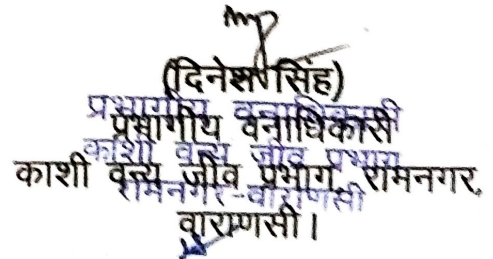 (दिनेश सिंह)
प्रभागीय वनाधिकारी
प्रभागीय वनाधिकारी
काशी वन्य जीव प्रभाग
काशी वन्य जीव प्रभाग, रामनगर,
रामनगर-वाराणसी
वाराणसी।